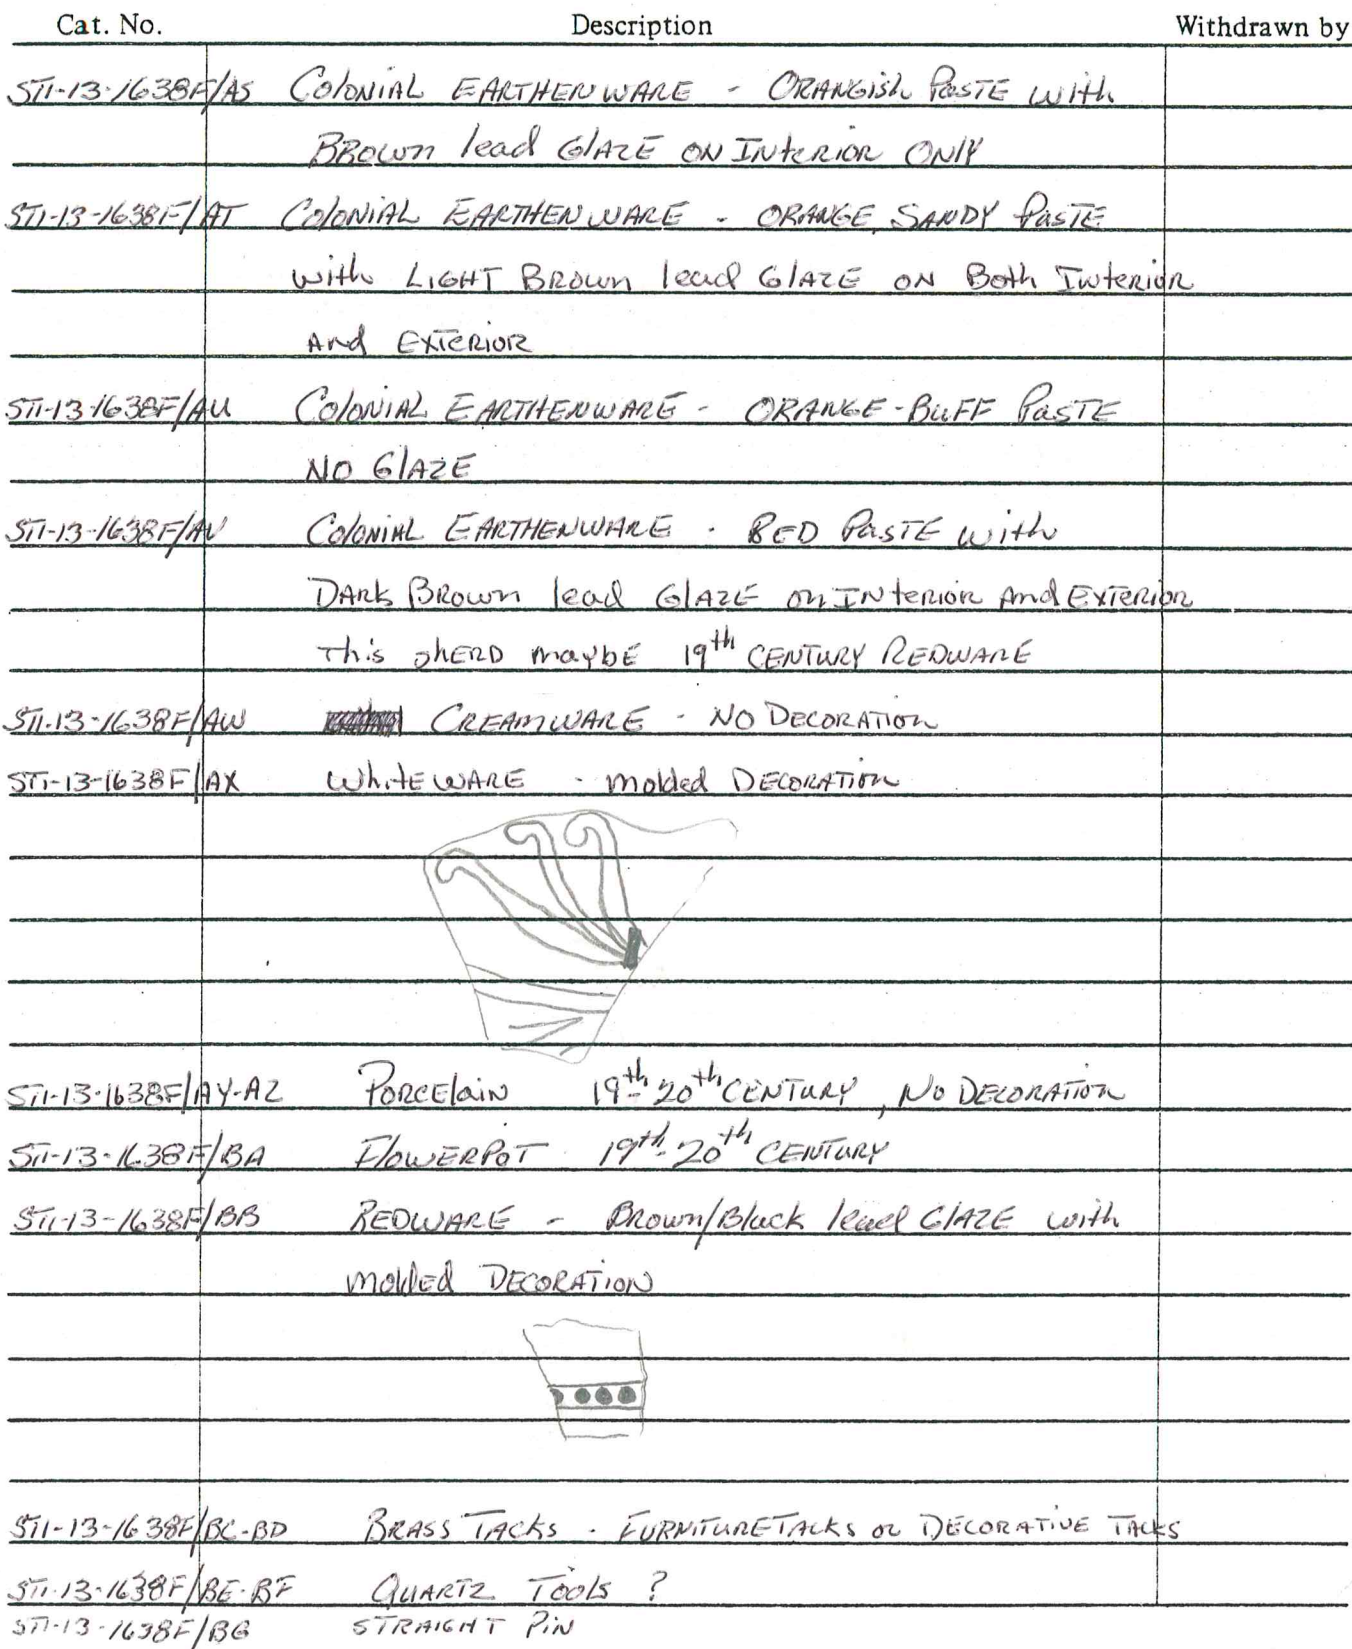 Cat. No. Description Withdrawn by
ST1-13-1638F/AS COLONIAL EARTHENWARE - ORANGISH PASTE with
BROWN lead GLAZE ON INTERIOR ONLY
ST1-13-1638F/AT COLONIAL EARTHENWARE - ORANGE, SANDY PASTE
with LIGHT BROWN lead GLAZE ON Both INTERIOR
And EXTERIOR
ST1-13-1638F/AU COLONIAL EARTHENWARE - ORANGE-BUFF PASTE
NO GLAZE
ST1-13-1638F/AV COLONIAL EARTHENWARE - RED PASTE with
DARK BROWN lead GLAZE on INTERIOR And EXTERIOR
This SHERD maybe 19th CENTURY REDWARE
ST1-13-1638F/AW CREAMWARE - NO DECORATION
ST1-13-1638F/AX WhiteWARE - molded DECORATION
ST1-13-1638F/AY-AZ PORCELAIN 19th-20th CENTURY, NO DECORATION
ST1-13-1638F/BA FLOWERPOT 19th-20th CENTURY
ST1-13-1638F/BB REDWARE - Brown/Black lead GLAZE with
molded DECORATION
ST1-13-1638F/BC-BD BRASS TACKS - FURNITURE TACKS or DECORATIVE TACKS
ST1-13-1638F/BE-BF QUARTZ TOOLS ?
ST1-13-1638F/BG STRAIGHT PIN